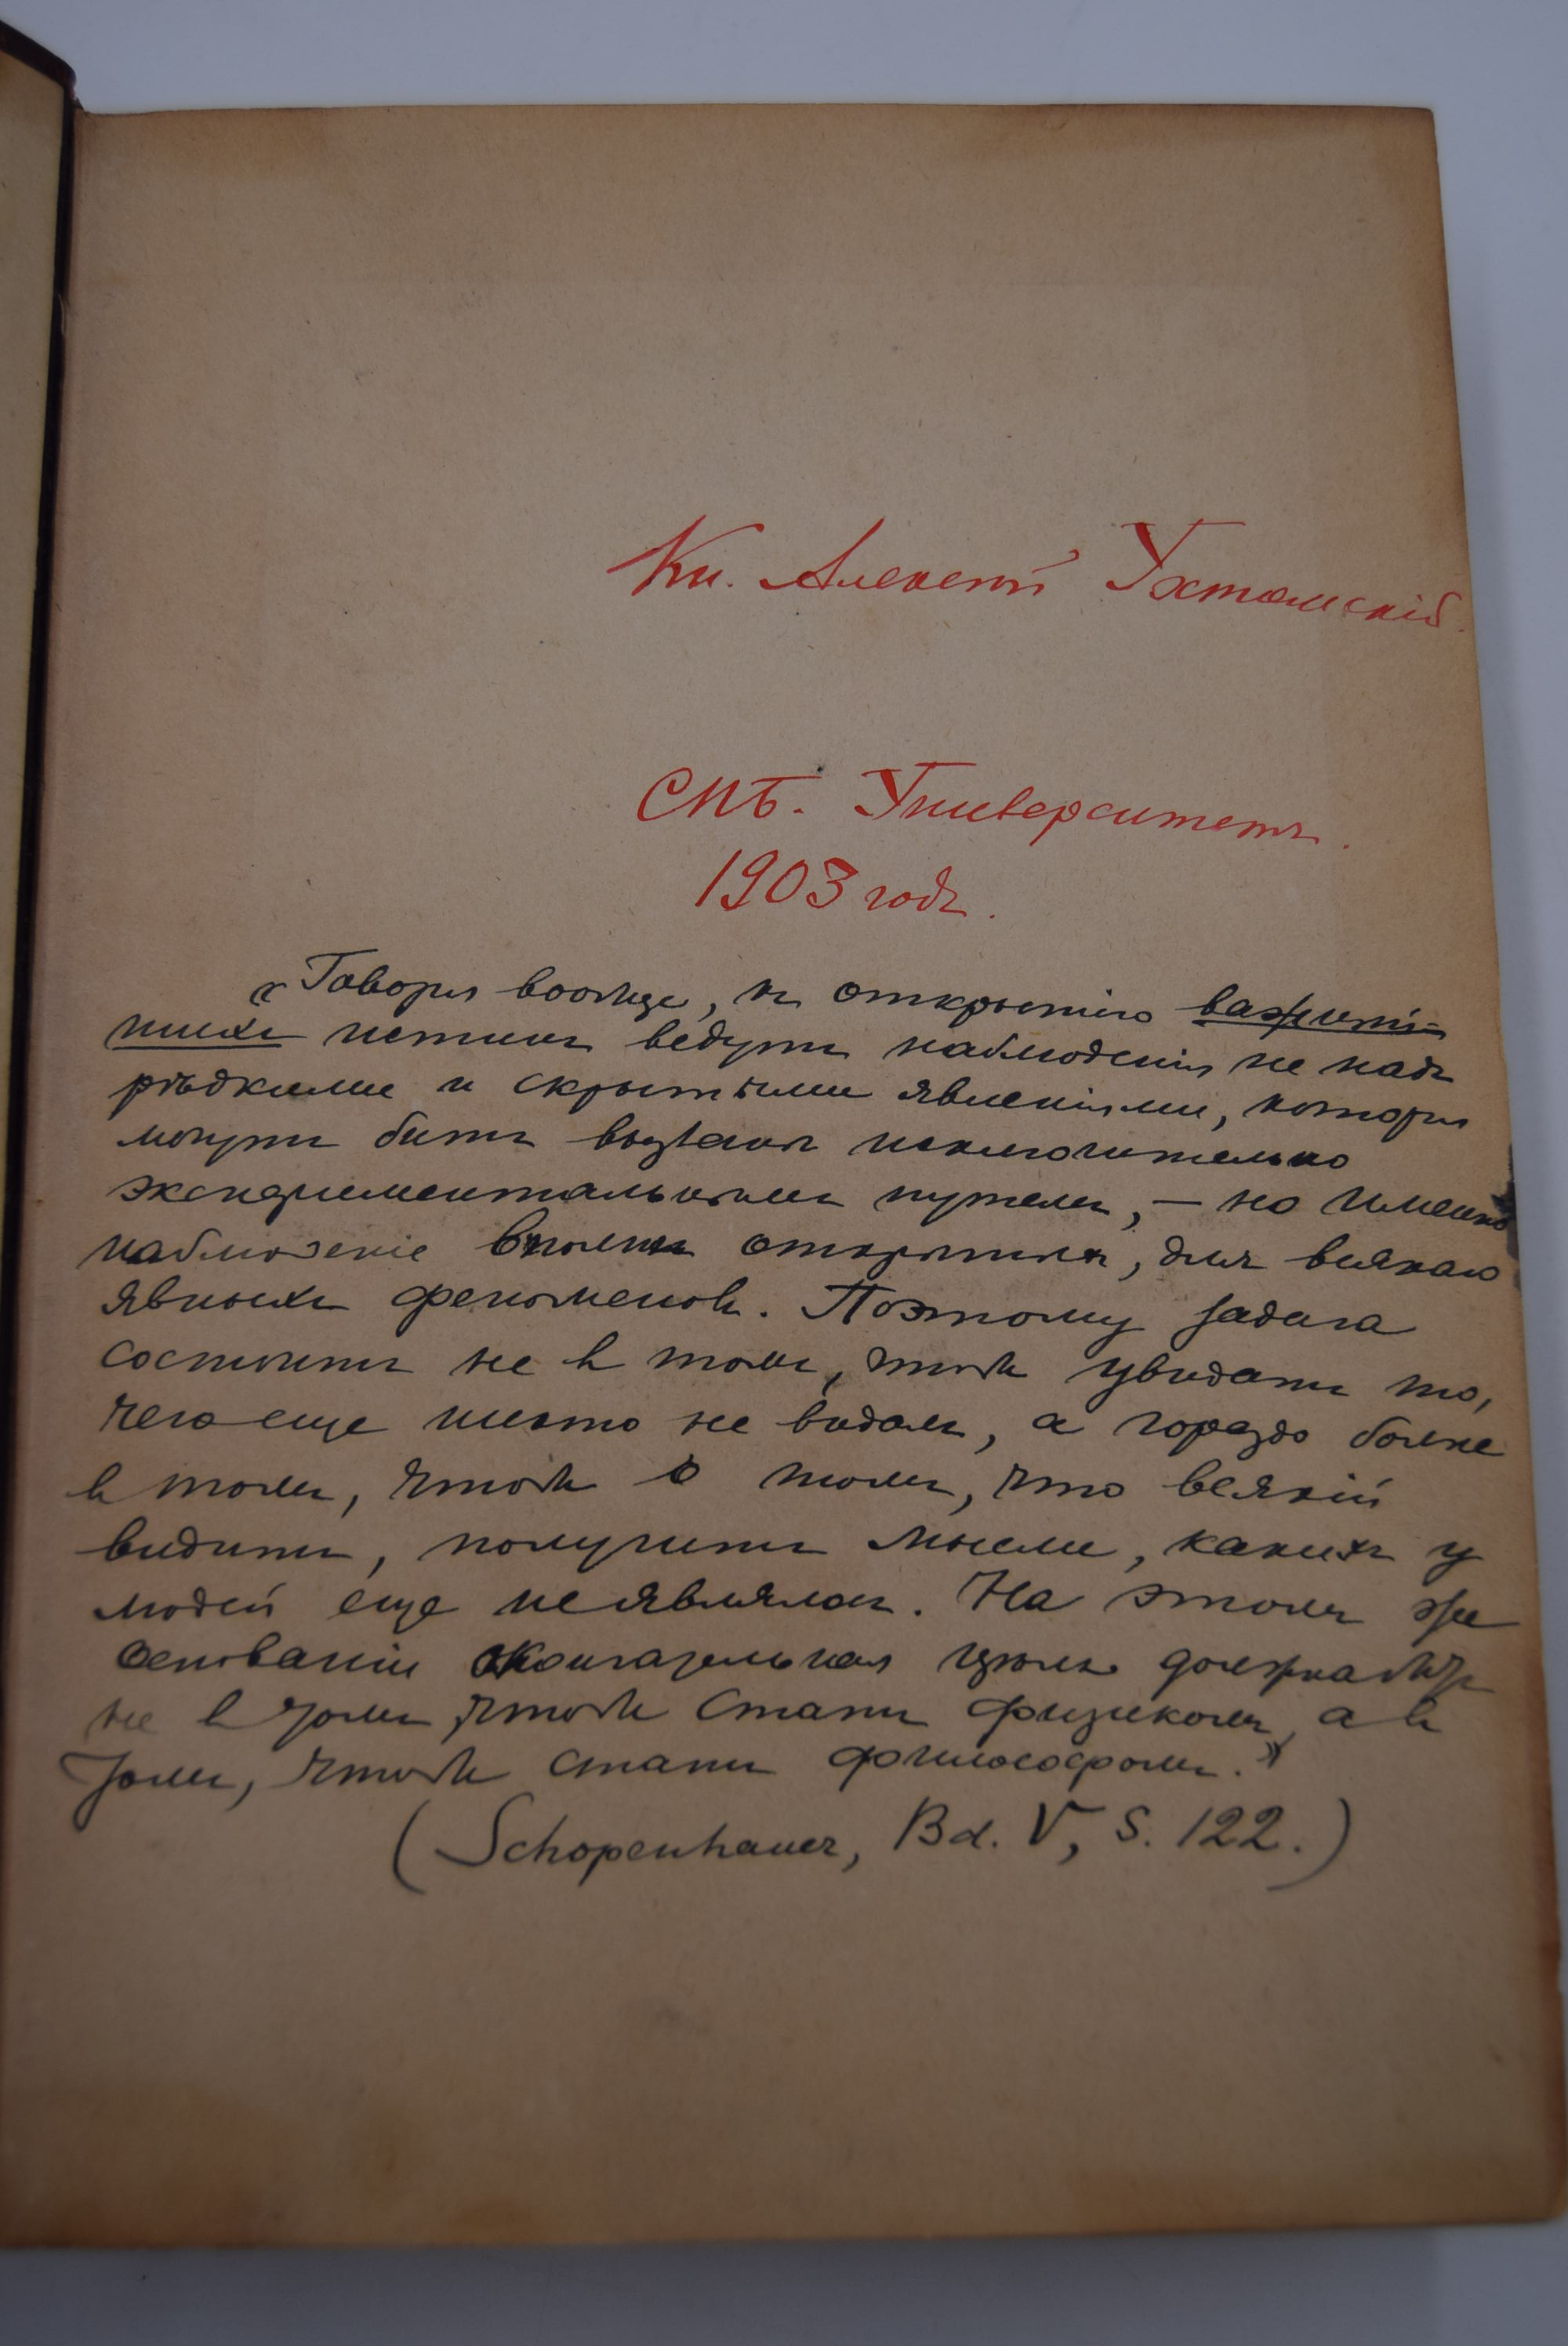 Кн. Алексѣй Ухтомскій.
СПБ. Университетъ.
1903 годъ.
«Говоря вообще, къ открытію важнѣй-
шихъ истинъ ведутъ наблюденія не надъ
рѣдкими и скрытыми явленіями, которыя
могутъ быть вызваны исключительно
экспериментальнымъ путемъ, — но именно
наблюденіе вполнѣ открытыхъ, для всякаго
явныхъ феноменовъ. Поэтому задача
состоитъ не въ томъ, чтобъ увидать то,
чего еще никто не видалъ, а гораздо болѣе
въ томъ, чтобъ о томъ, что всякій
видитъ, получить мысли, какихъ у
людей еще не являлось. На этомъ же
основаніи окончательная цѣль должна быть
не въ томъ, чтобъ стать физикомъ, а въ
томъ, чтобъ стать философомъ.»
(Schopenhauer, Bd. V, S. 122.)